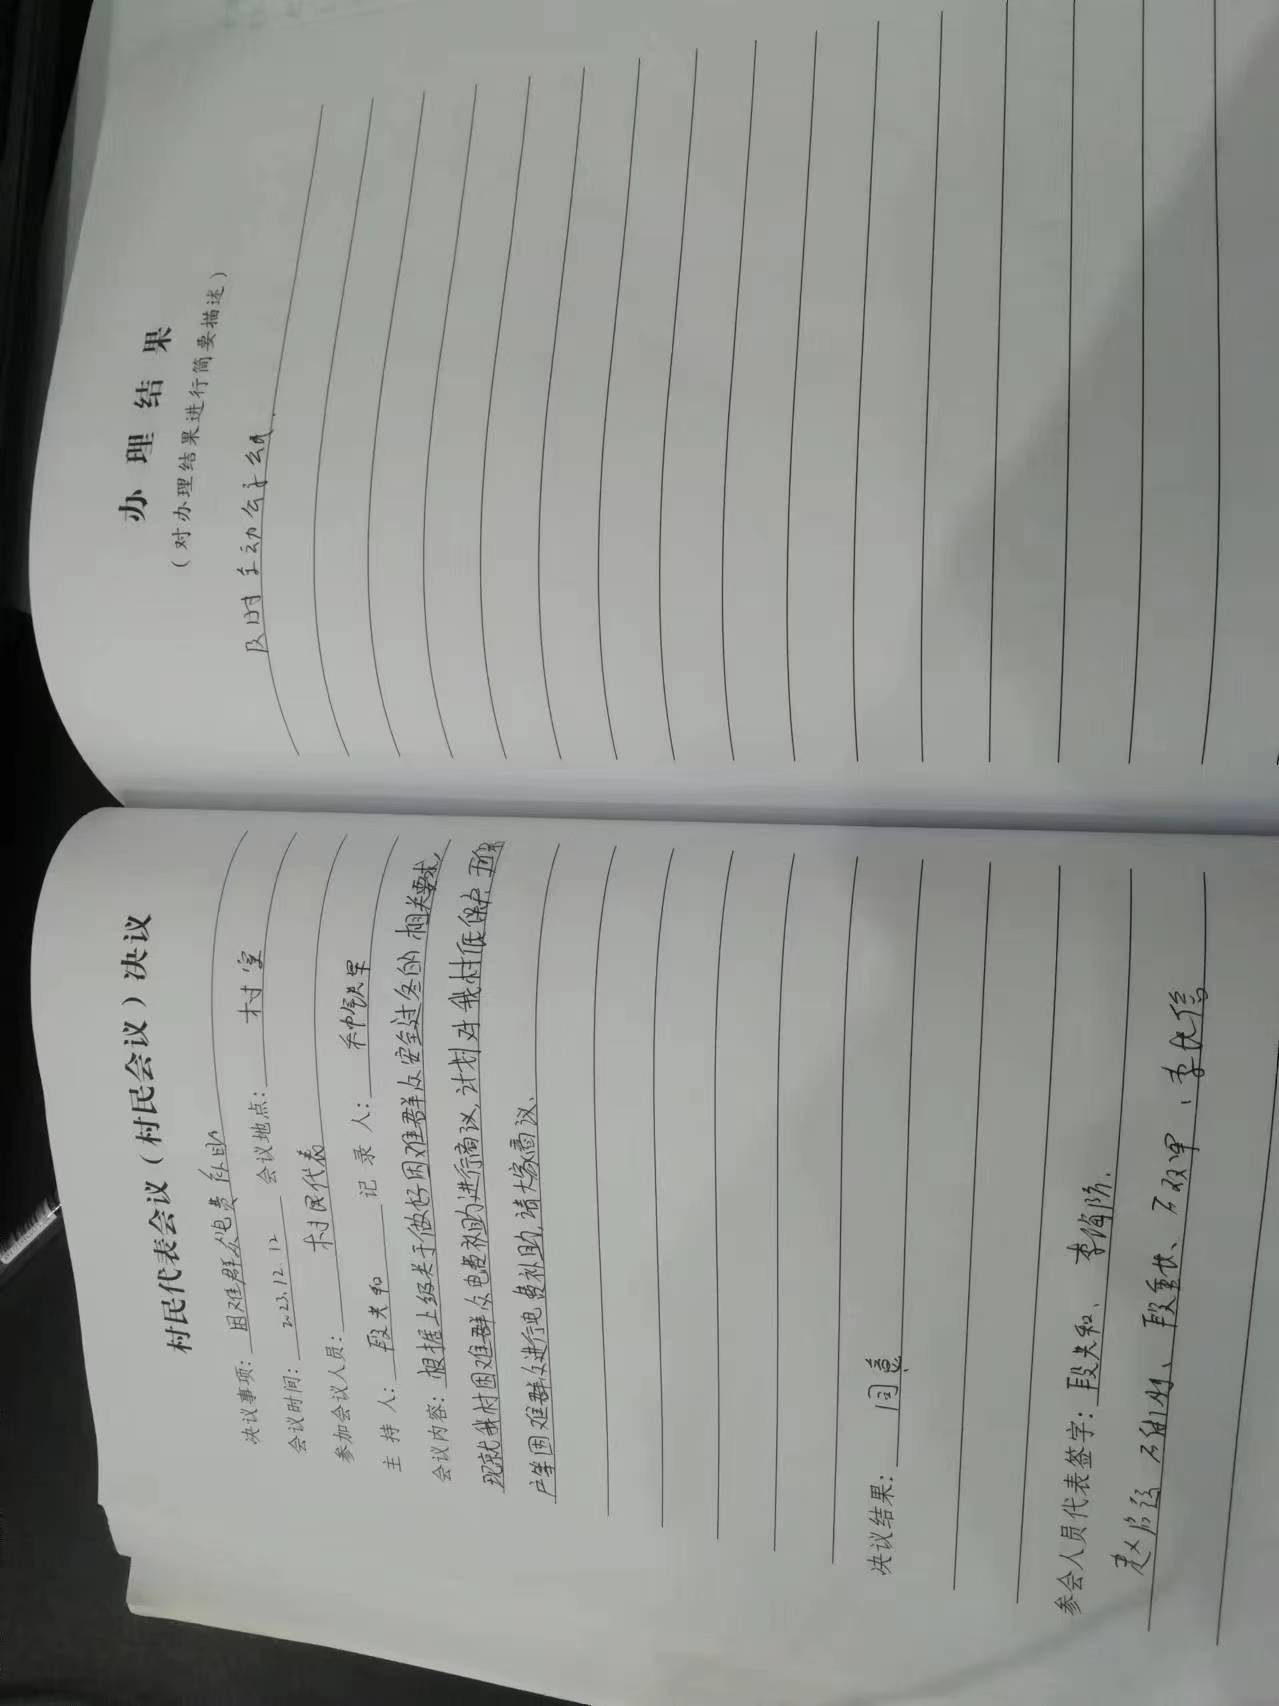 村民代表会议（村民会议）决议
决议事项：困难群众电费补助
会议时间：2023.12.12 会议地点：村室
参加会议人员：村民代表
主持人：段光和 记录人：
会议内容：根据上级关于做好困难群众安全过冬的相关要求，
现就我村困难群众电费补助进行商议，计划对我村低保户、五保
户等困难群众进行电费补助，请大家商议、
决议结果：同意
参会人员代表签字：段光和、李海阶.
办理结果
（对办理结果进行简要描述）
及时主动公示公开.